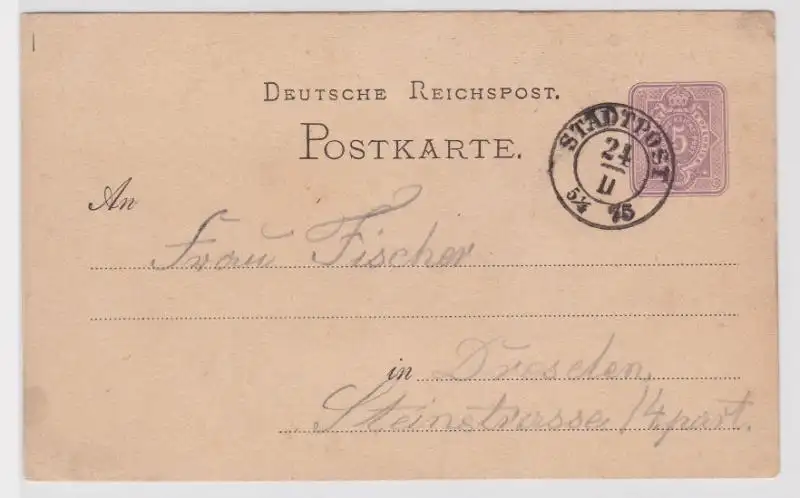 DEUTSCHE REICHSPOST.
POSTKARTE.
STADTPOST
24
II
5¼ 75
5
An
Frau Fischer
in Dresden,
Steinstrasse 14, part.